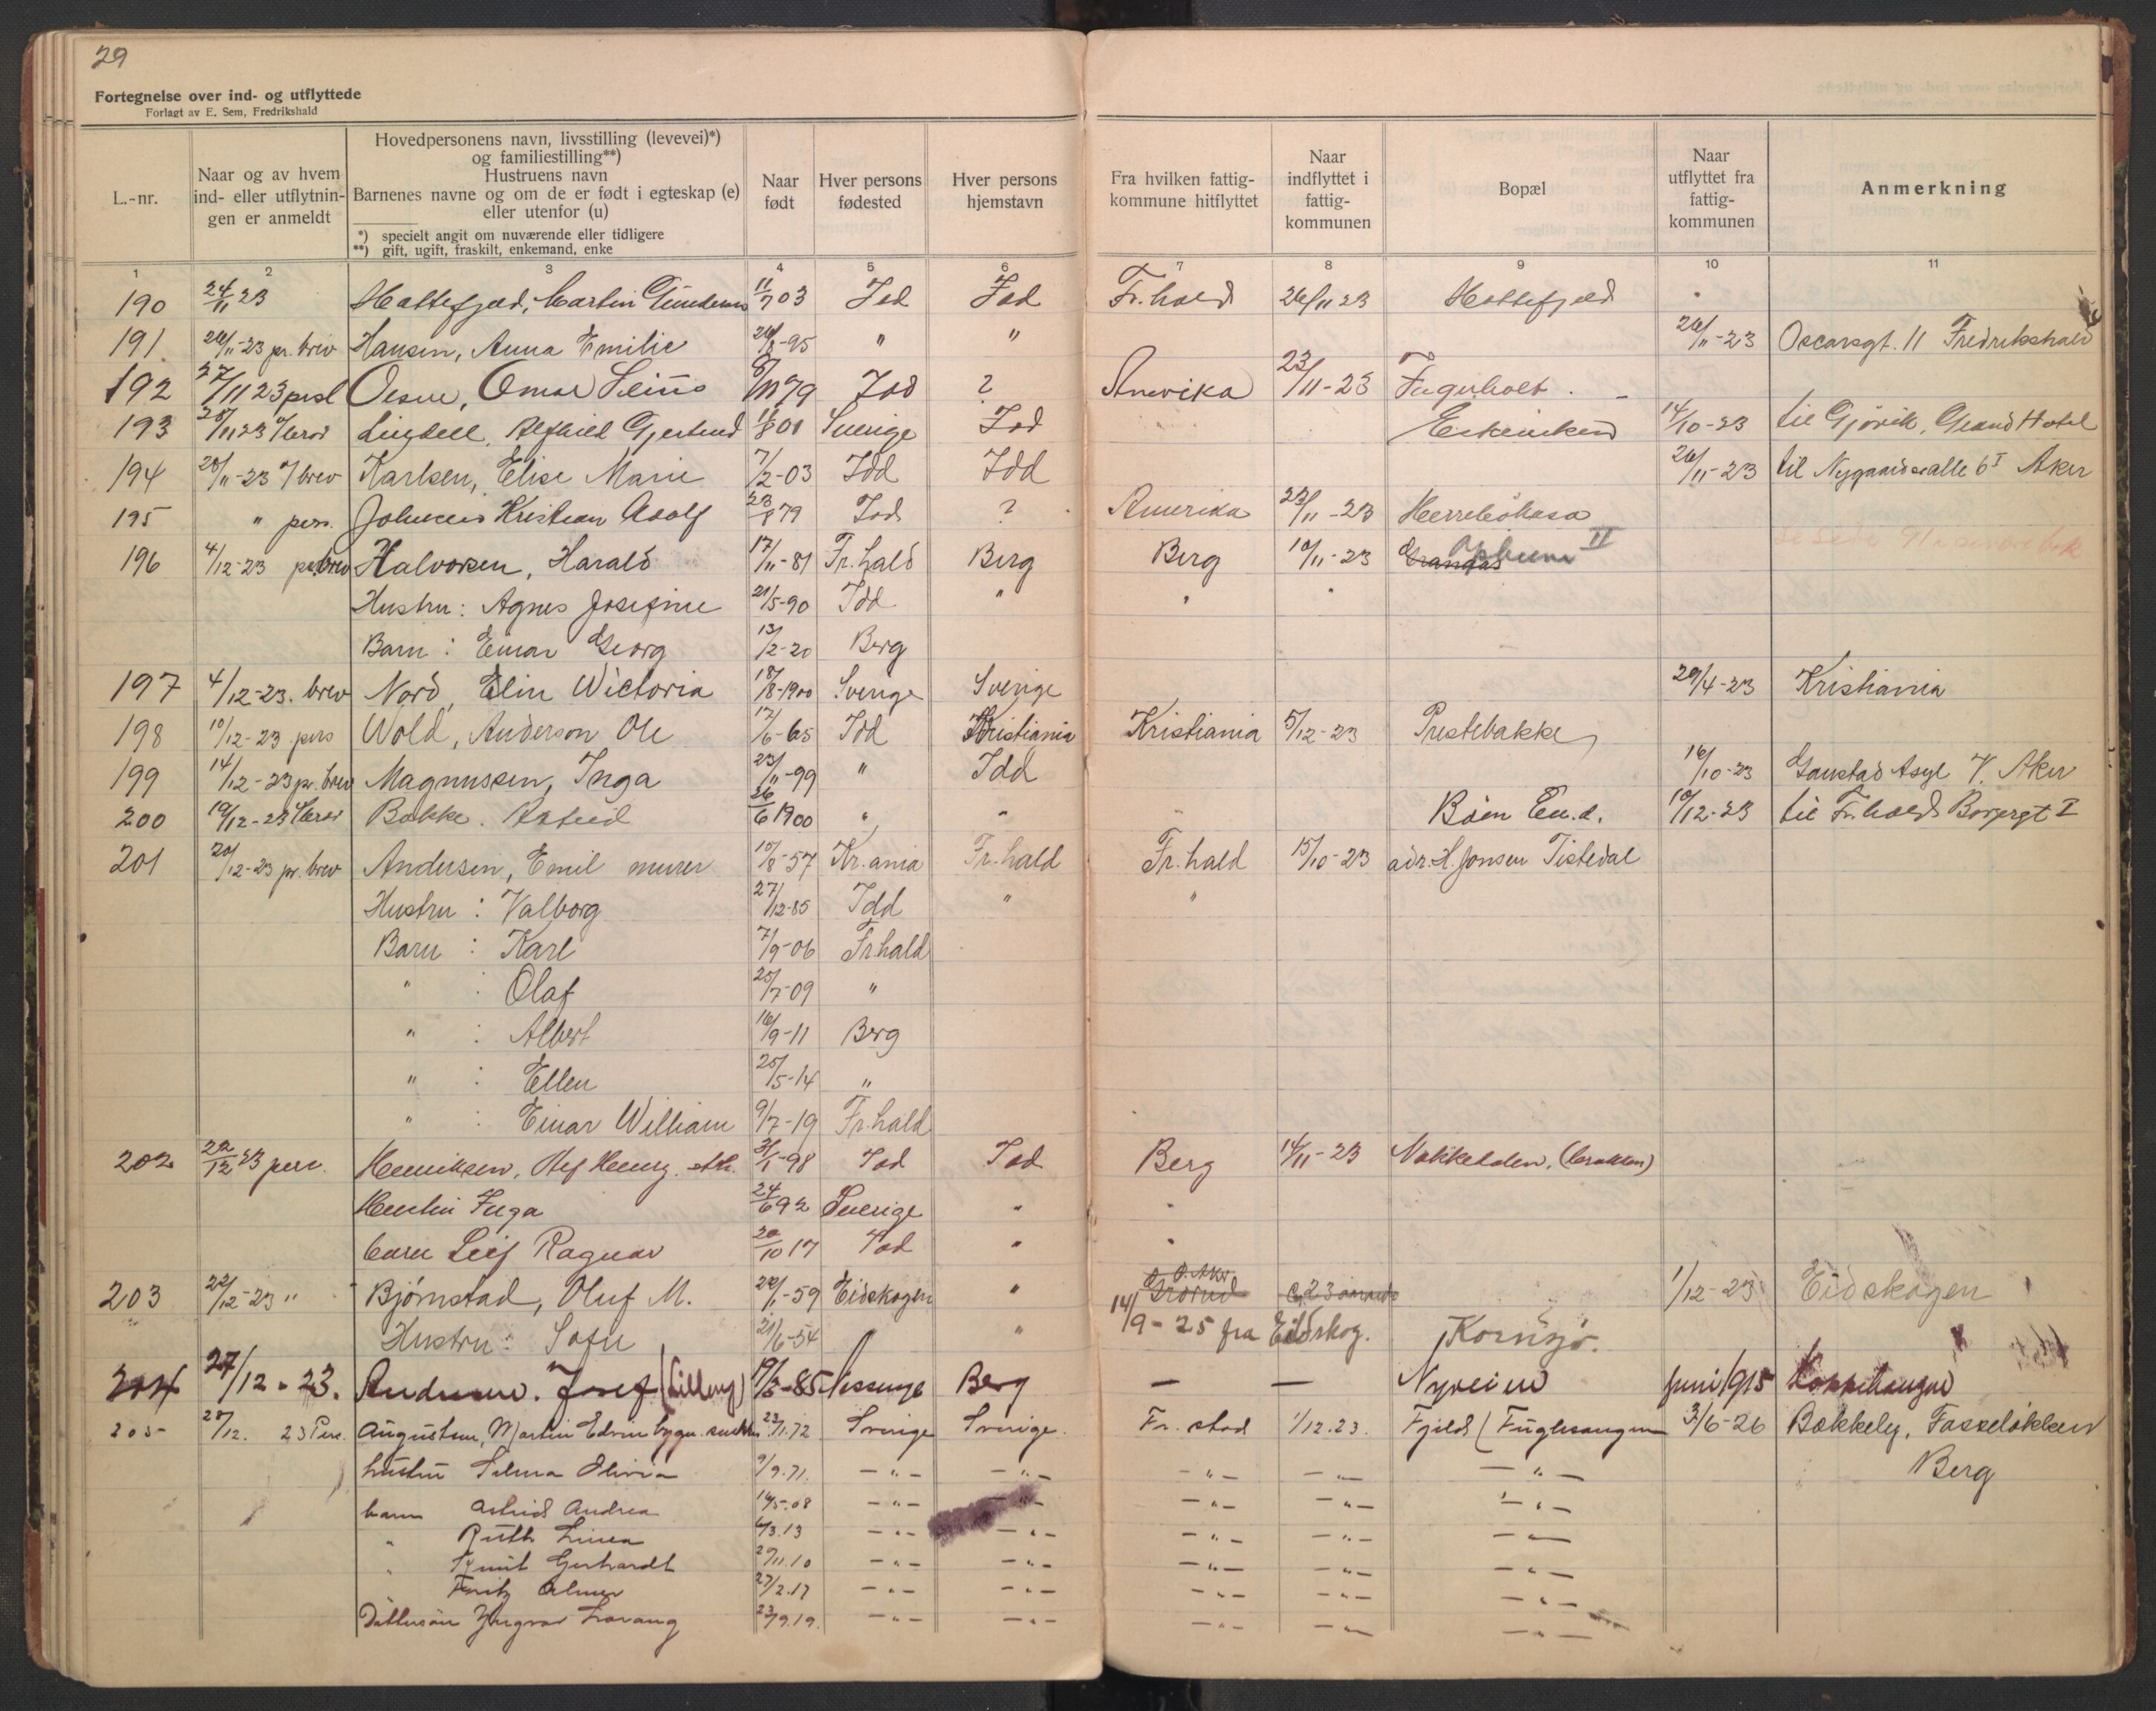 29
Fortegnelse over ind- og utflyttede
Forlagt av E. Sem, Fredrikshald
L.-nr. Naar og av hvem ind- eller utflytnin-gen er anmeldt Hovedpersonens navn, livsstilling (levevei)*) og familiestilling**) Hustruens navn Barnenes navne og om de er født i egteskap (e) eller utenfor (u) Naar født Hver persons fødested Hver persons hjemstavn Fra hvilken fattig-kommune hitflyttet Naar indflyttet i fattig-kommunen Bopæl Naar utflyttet fra fattig-kommunen Anmerkning
*) specielt angit om nuværende eller tidligere
**) gift, ugift, fraskilt, enkemand, enke
1 2 3 4 5 6 7 8 9 10 11
190 24/11 23 Hattefjeld, Martin 11/7 03 Idd Idd Fr.hald 24/11 23 Hattefjeld
191. 24/11-23 pr. brev Hansen, Anna Emilie 24/8-95 " " 24/11-23 Oscarsgt. 11 Fredrikshald
192 27/11 23 Omar 79 Idd ? Amerika 23/11-23 Fagerholt
193 28/11 23 Gjertrud 11/8 01 Sverige Idd 14/10-23 til Gjøvik, Grand Hotel
194 28/11-23 / brev Karlsen, Elise Marie 7/2-03 Idd Idd 24/11-23 til Nygaardsalle 6 I Aker
195 " pers. Johannes Kristian Adolf 23/8 79 Idd ? Amerika 23/11-23 Herrebøkasa
196 4/12-23 pr. brev Halvorsen, Harald 17/11-81 Fr.hald Berg Berg 10/11-23 Grangås II
Hustru: Agnes Josefine 21/5-90 Idd " " "
Barn: Einar Georg 13/2-20 Berg
197 4/12-23. brev Nord, Elin Wictoria 18/8-1900 Sverige Sverige 29/4-23 Kristiania
198 10/12-23 pers Wold, Anderson Ole 17/6-65 Idd Kristiania Kristiania 5/12-23 Prestebakke
199 14/12-23 pr. brev Magnussen, Inga 23/11-99 " Idd 16/10-23 Gaustad Asyl V. Aker
200 19/12-23 Bakke. Astrid 26/6 1900 " " Bøen En.d. 10/12-23 til Fr.hald Borgergt I
201 20/12-23 pr. brev Andersen, Emil murer 15/8-57 Kr.ania Fr.hald Fr.hald 15/10-23 adr. H. Jonsen Tistedal
Hustru: Valborg 27/12-85 Idd " "
Barn: Karl 7/9-06 Fr.hald
" : Olaf 25/7-09 "
" : Albert 16/9-11 Berg
" : Ellen 25/5-14 "
" : Einar William 9/7-19 Fr.hald
202 22/12 23 pers. Henriksen, 31/1-98 Idd Idd Berg 14/11-23 Nakkedalen. (brakken)
Hustru Inga 24/6 92 Sverige " "
barn Leif Ragnar 20/10 17 Idd " "
203 22/12-23 " Bjørnstad, Oluf M. 22/1-59 Eidskogen " Grorud 1/12-23 Eidskogen
Hustru: Sofie 21/6-54 " 14/9-25 fra Eidskog. Kornsjø.
204 27/12-23. Andersen. Josef (Lilleng) 19/6-85 Berg — — Nyveien Juni 1915
205 28/12. 23 Pers. Augustsen, Martin Edvin bygn. snekker 23/1.72 Sverige Sverige. Fr. stad 1/12.23. Fjeld (Fuglesangen 3/6-26 Bakkely, Fasseløkken
hustru Selma Olivia 9/9.71. -"- -"- -"- -"- -"- Berg
barn Astrid Andrea 14/5.08 -"- -"- -"- -"- -"-
" Ruth Linea 4/3.13 -"- -"- -"- -"- -"-
" Gerhardt 29/11.10 -"- -"- -"- -"- -"-
Fritz Elmer 27/2.17 -"- -"- -"- -"- -"-
Dattersøn Yngvar 23/9.19. -"- -"- -"- -"- -"-